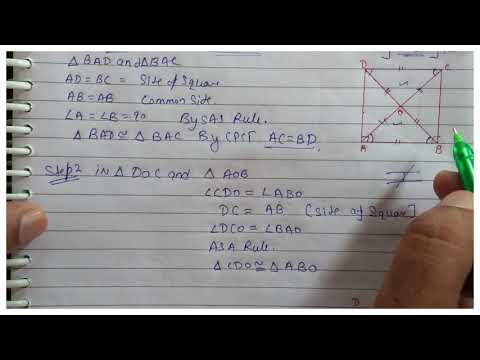 △ BAD and △BAC
AD = BC = Side of Square
AB = AB Common Side.
∠A = ∠B = 90 By SAS Rule.
△ BAD ≅ △ BAC By CPCT AC = BD.
Step2 in △ DOC and △ AOB
∠CDO = ∠ABO
DC = AB [Side of Square]
∠DCO = ∠BAO
ASA Rule.
△ CDO ≅ △ ABO
D C
O
A B
D